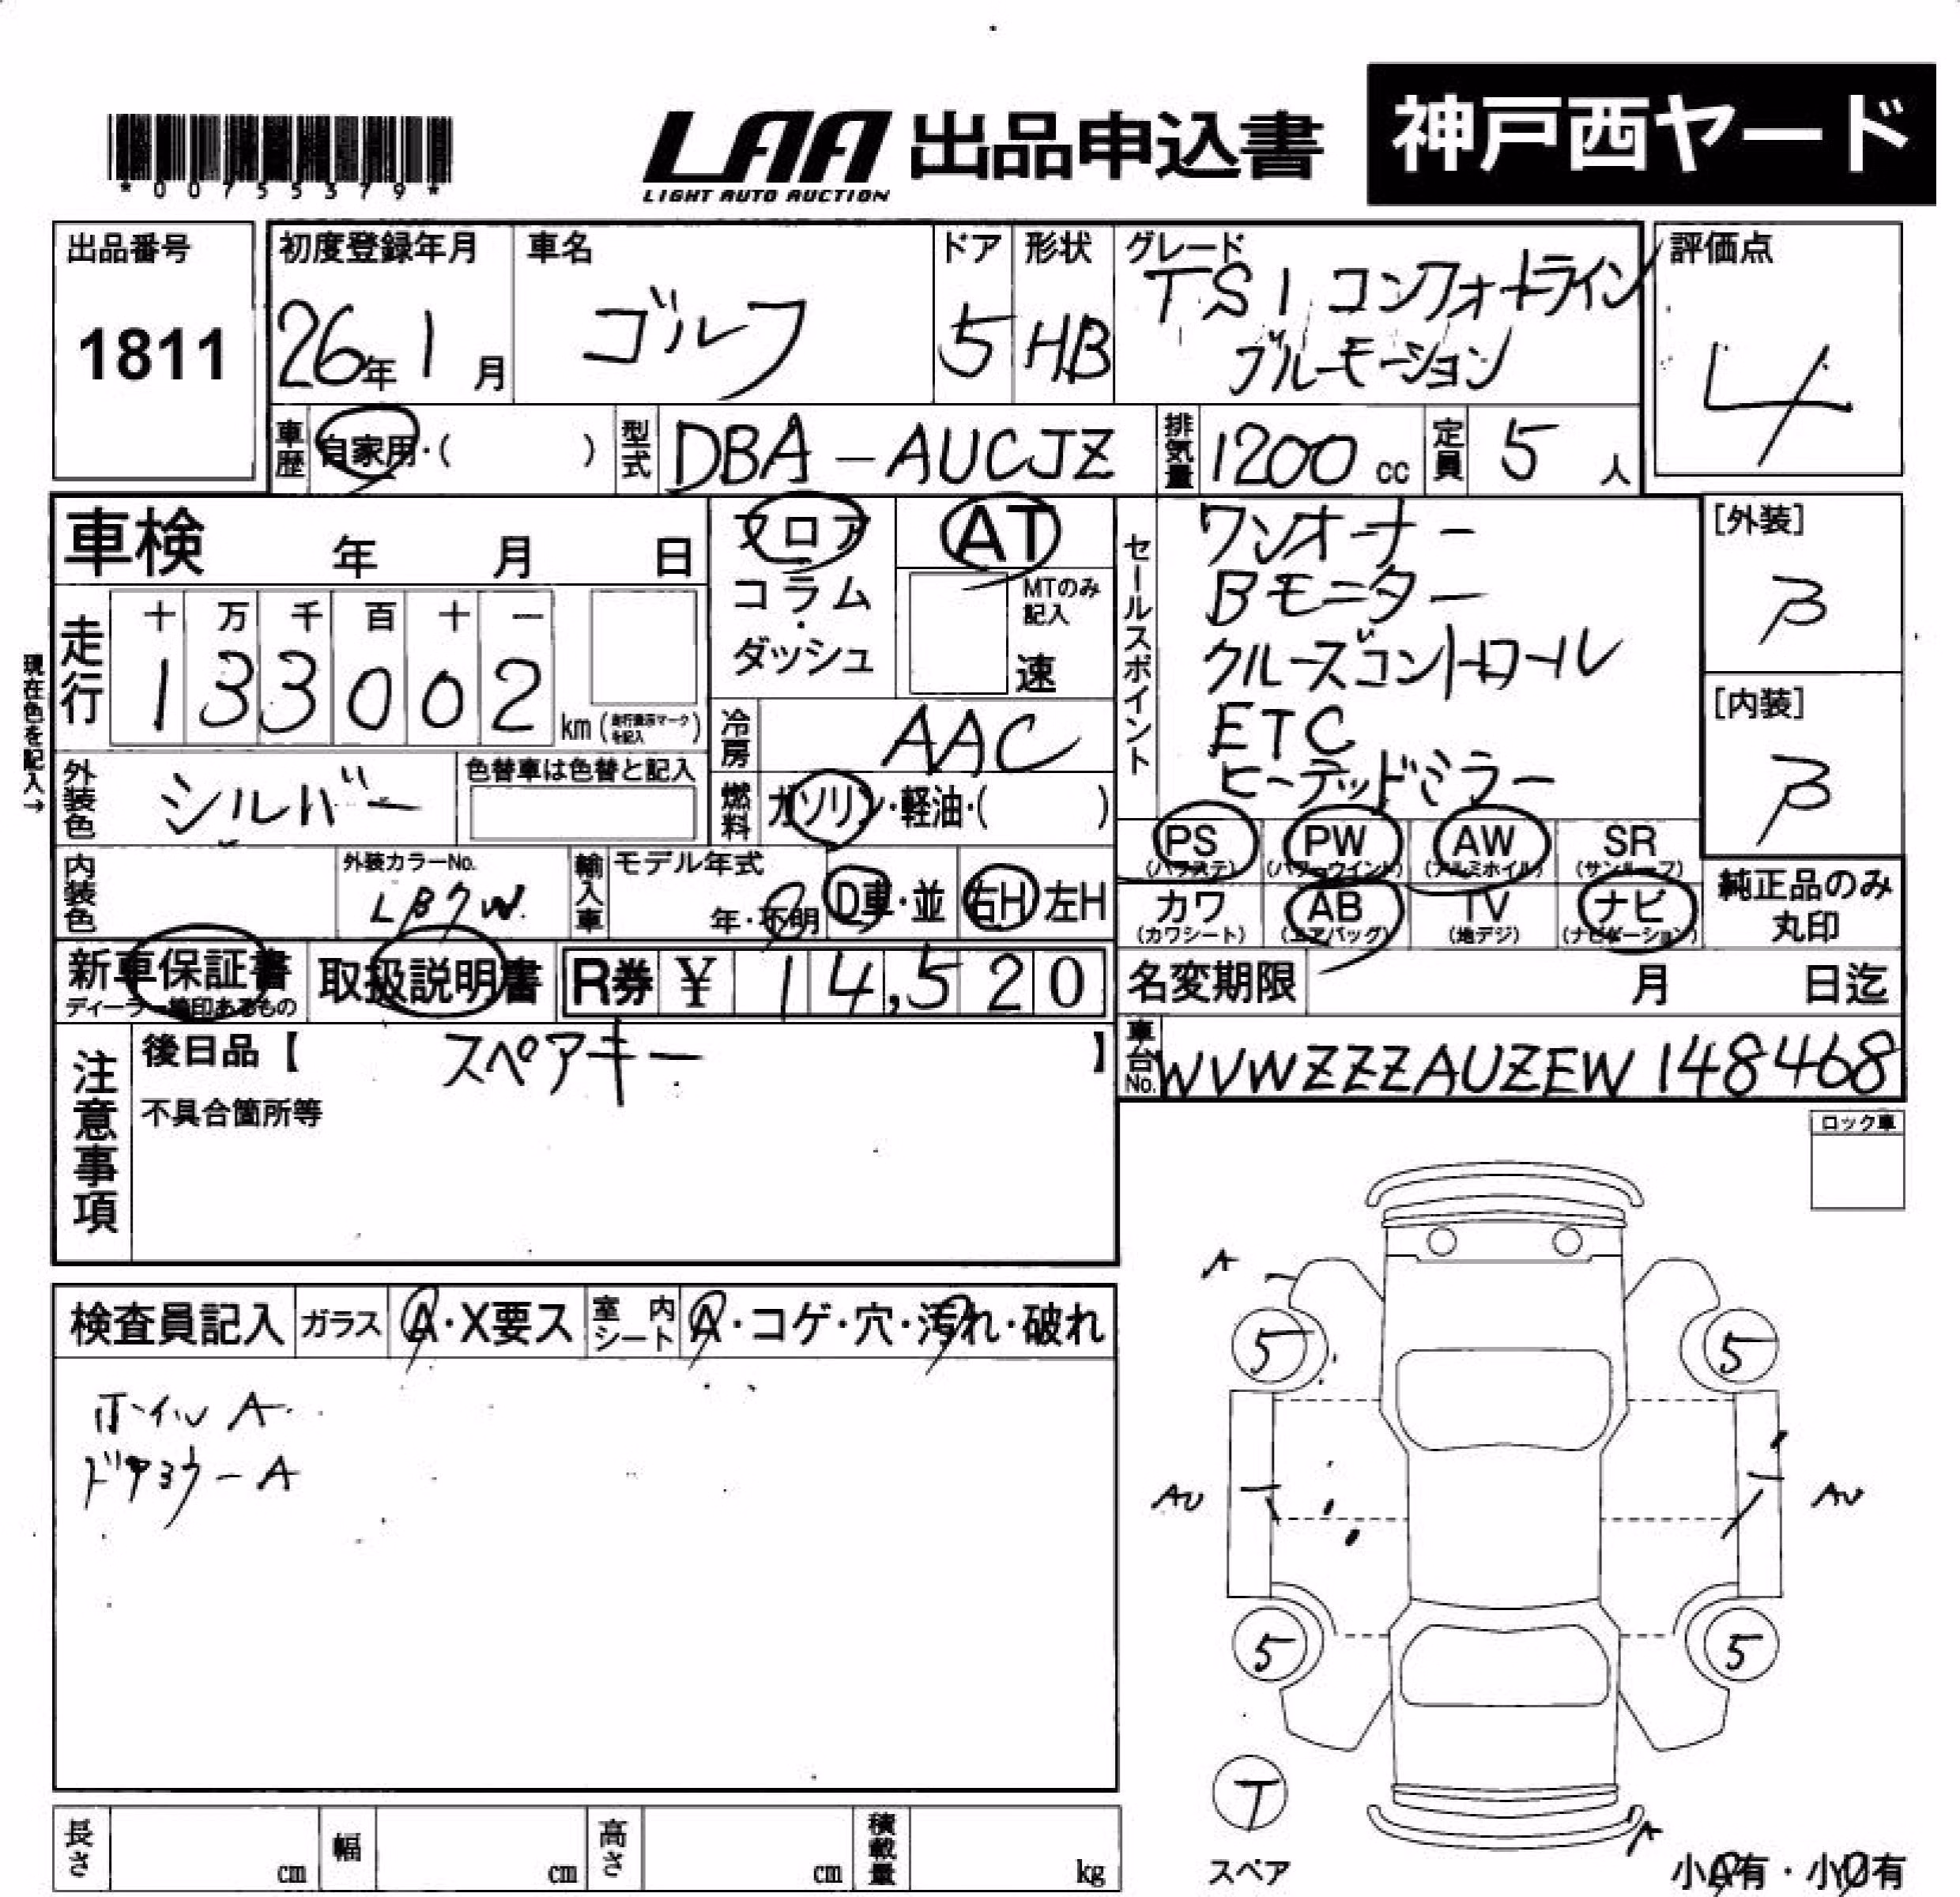 *00755379*
LAA 出品申込書 神戸西ヤード
LIGHT AUTO AUCTION
出品番号
1811
初度登録年月
26年1月
車名
ゴルフ
ドア
5
形状
HB
グレード
TSI コンフォートライン
ブルーモーション
評価点
4
車歴 自家用・( )
型式 DBA-AUCJZ
排気量 1200 cc
定員 5 人
車検 年 月 日
フロア
コラム
・
ダッシュ
AT
MTのみ
記入
速
セールスポイント
ワンオーナー
Bモニター
クルーズコントロール
ETC
ヒーテッドミラー
[外装]
B
[内装]
B
現在色を記入→
走行
十 万 千 百 十 一
1 3 3 0 0 2
km
冷房 AAC
外装色 シルバー
色替車は色替と記入
燃料 ガソリン・軽油・( )
PS PW AW SR
(パワステ) (パワーウインド) (アルミホイル) (サンルーフ)
カワ AB TV ナビ
(カワシート) (エアバッグ) (地デジ) (ナビゲーション)
純正品のみ
丸印
内装色
外装カラーNo.
LB7W
輸入車
モデル年式
年・不明
D車・並 右H 左H
新車保証書
取扱説明書
R券 ¥ 14,520
名変期限 月 日迄
車台No. WVWZZZAUZEW148468
注意事項
後日品【 スペアキー 】
不具合箇所等
ロック車
検査員記入 ガラス A・X要ス 室内シート A・コゲ・穴・汚れ・破れ
ホイル A
A
A
5 5
AU AU
5 5
T
スペア
A
小A有・小U有
長さ cm 幅 cm 高さ cm 積載量 kg